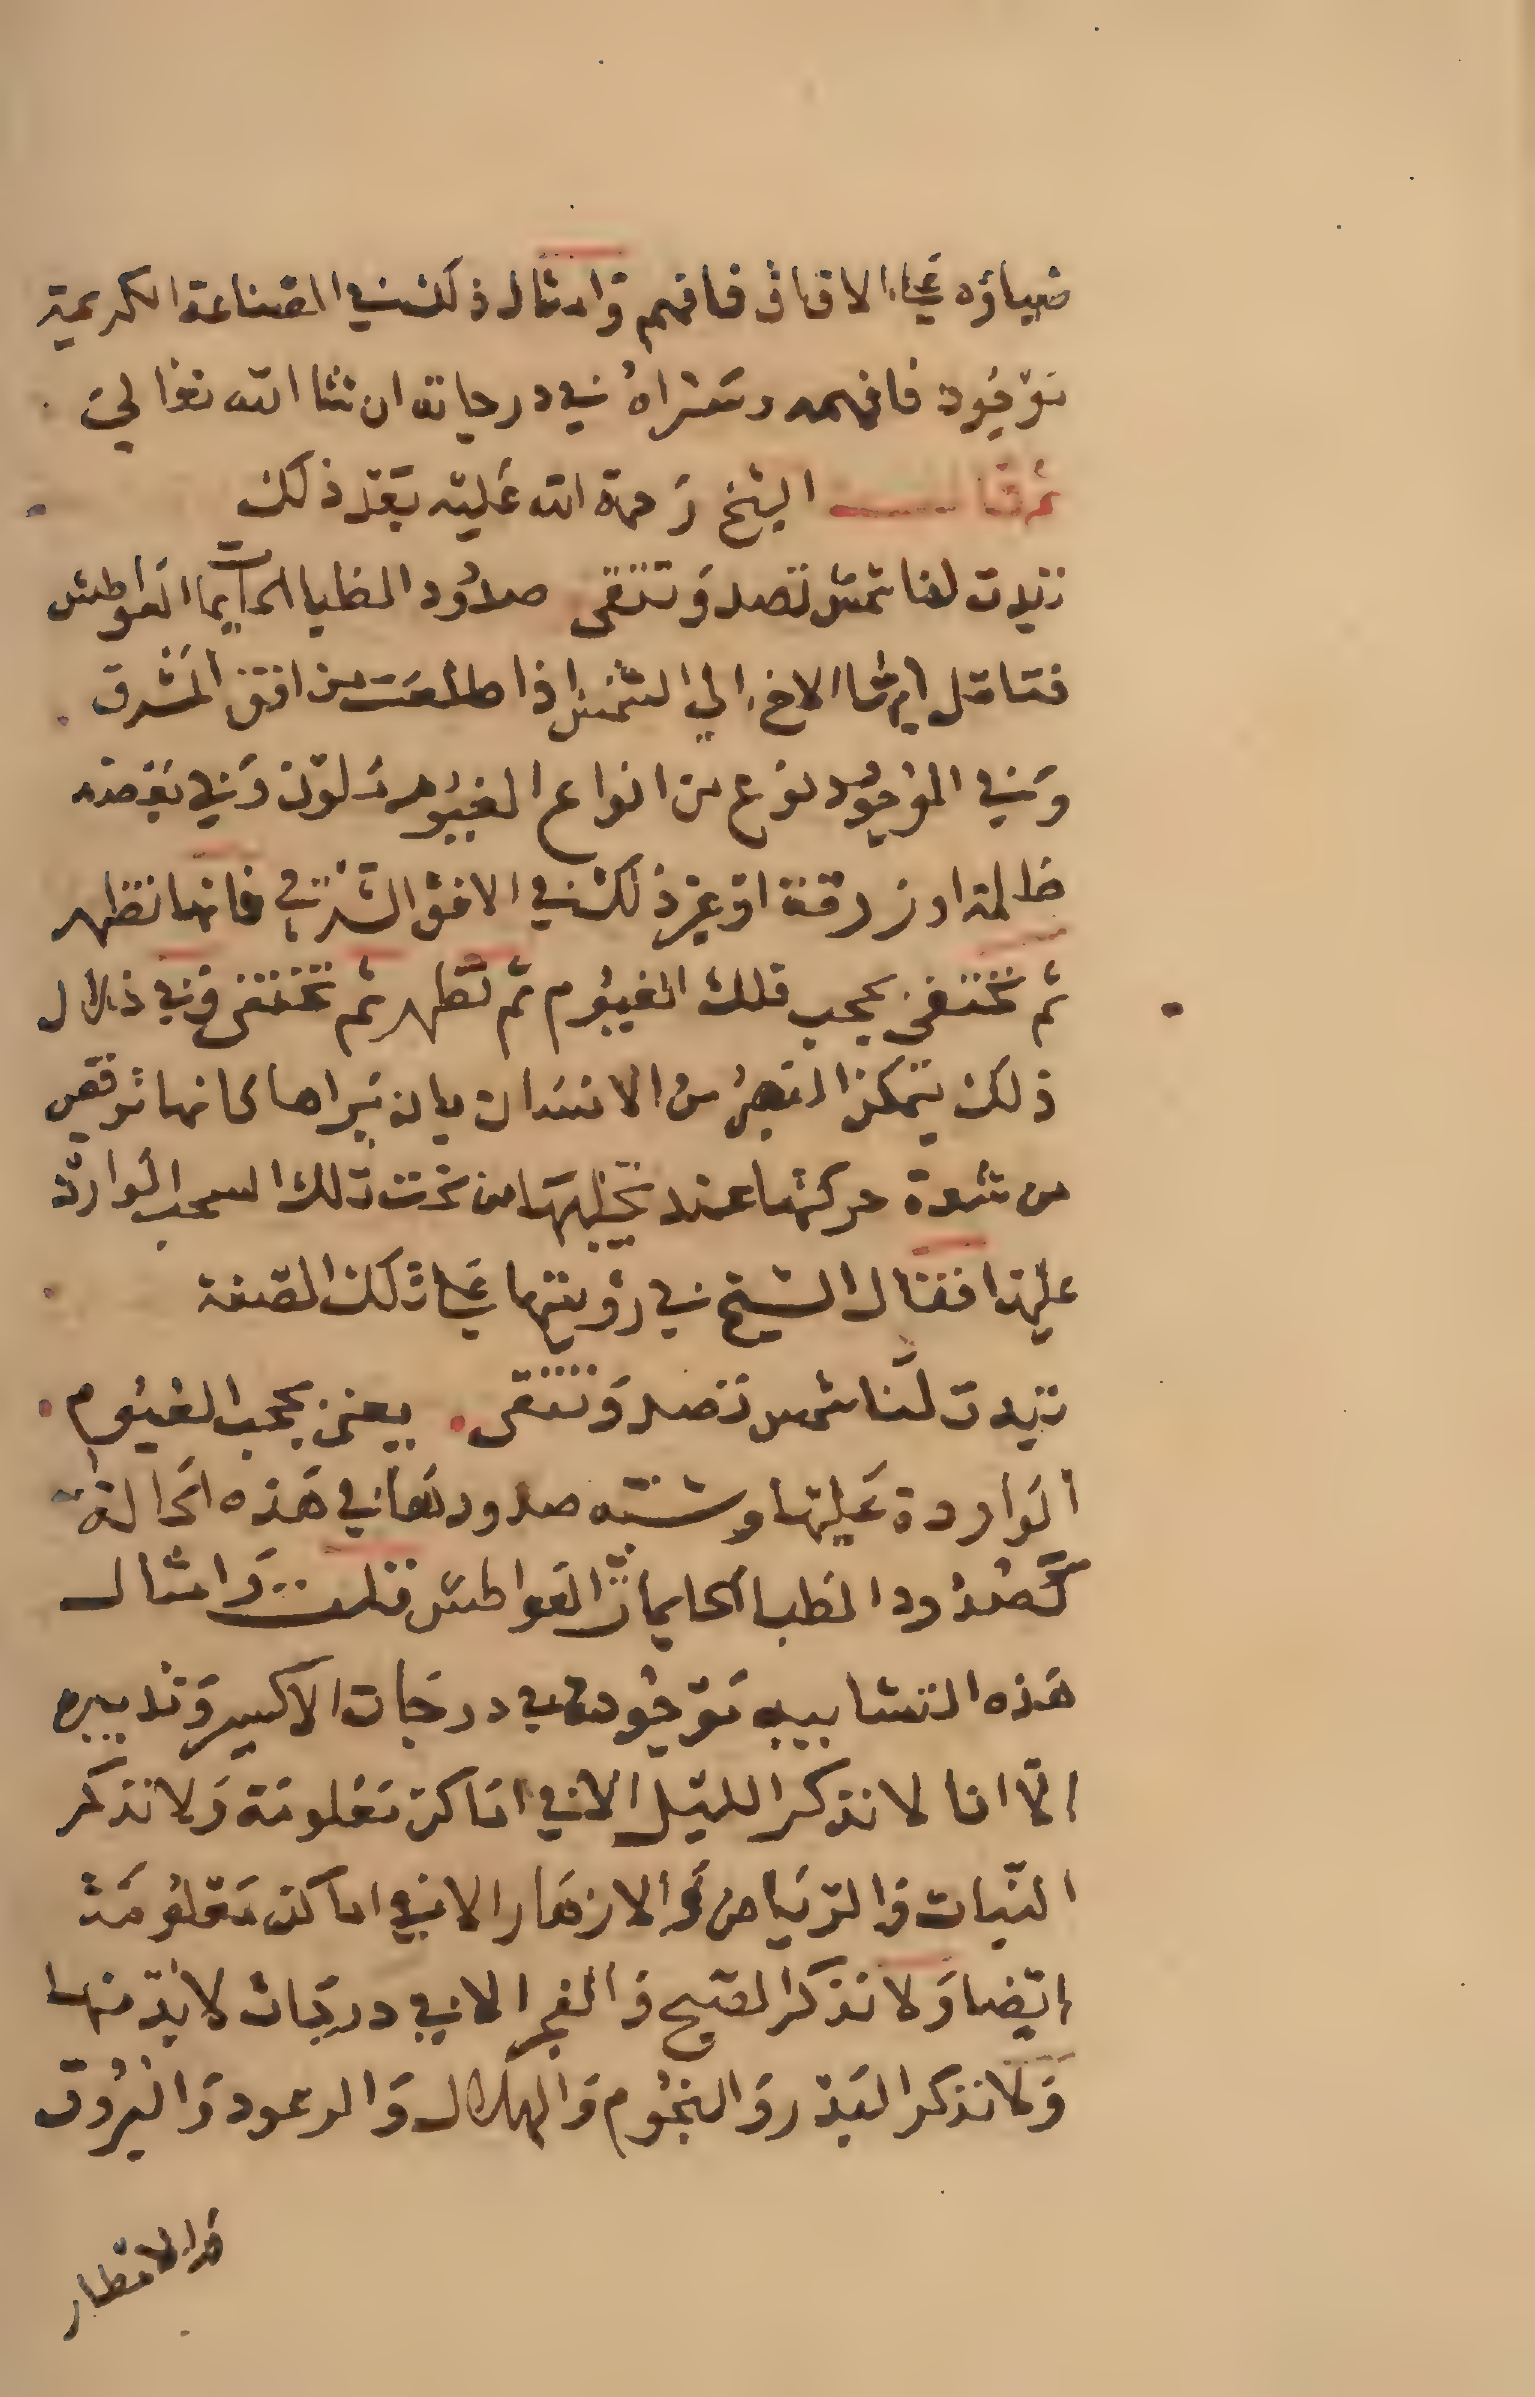 ضياؤه على الافاق فافهم وامثال ذلك في الصناعة الكريمة
موجود فافهمه وستراه في درجاته ان شا الله تعالى
ثم قال الشيخ رحمة الله عليه بعد ذلك
تبدت لنا شمس تصد وتتقى صدود الظبا الحايمات العواطش
فتامل ايها الاخ الى الشمس اذا طلعت من افق المشرق
وفي الموجود نوع من انواع الغيوم ملون وفي بعضه
ظلمة او زرقة او غير ذلك في الافق الشرقي فانها تظهر
ثم تختفى بحجب تلك الغيوم ثم تظهر ثم تختفى وفي خلال
ذلك يتمكن البصر من الانسان بان يراها كانها ترقص
من شدة حركتها عند تجليها من تحت تلك السحب الواردة
عليها فقال الشيخ في رؤيتها على تلك الصفة
تبدت لنا شمس تصد وتتقى يعنى بحجب الغيوم
الواردة عليها وشبه صدودها في هذه الحالة
كصدود الظبا الحايمات العواطش قلت وامثال
هذه التشابيه موجودة في درجات الاكسير وتدبيره
الا انا لا نذكر الليل الا في اماكن معلومة ولا نذكر
النبات والرياض والازهار الا في اماكن معلومة
ايضا ولا نذكر الصبح والفجر الا في درجات لابد منها
ولا نذكر البدر والنجوم والهلال والرعود والبروق
والامطار